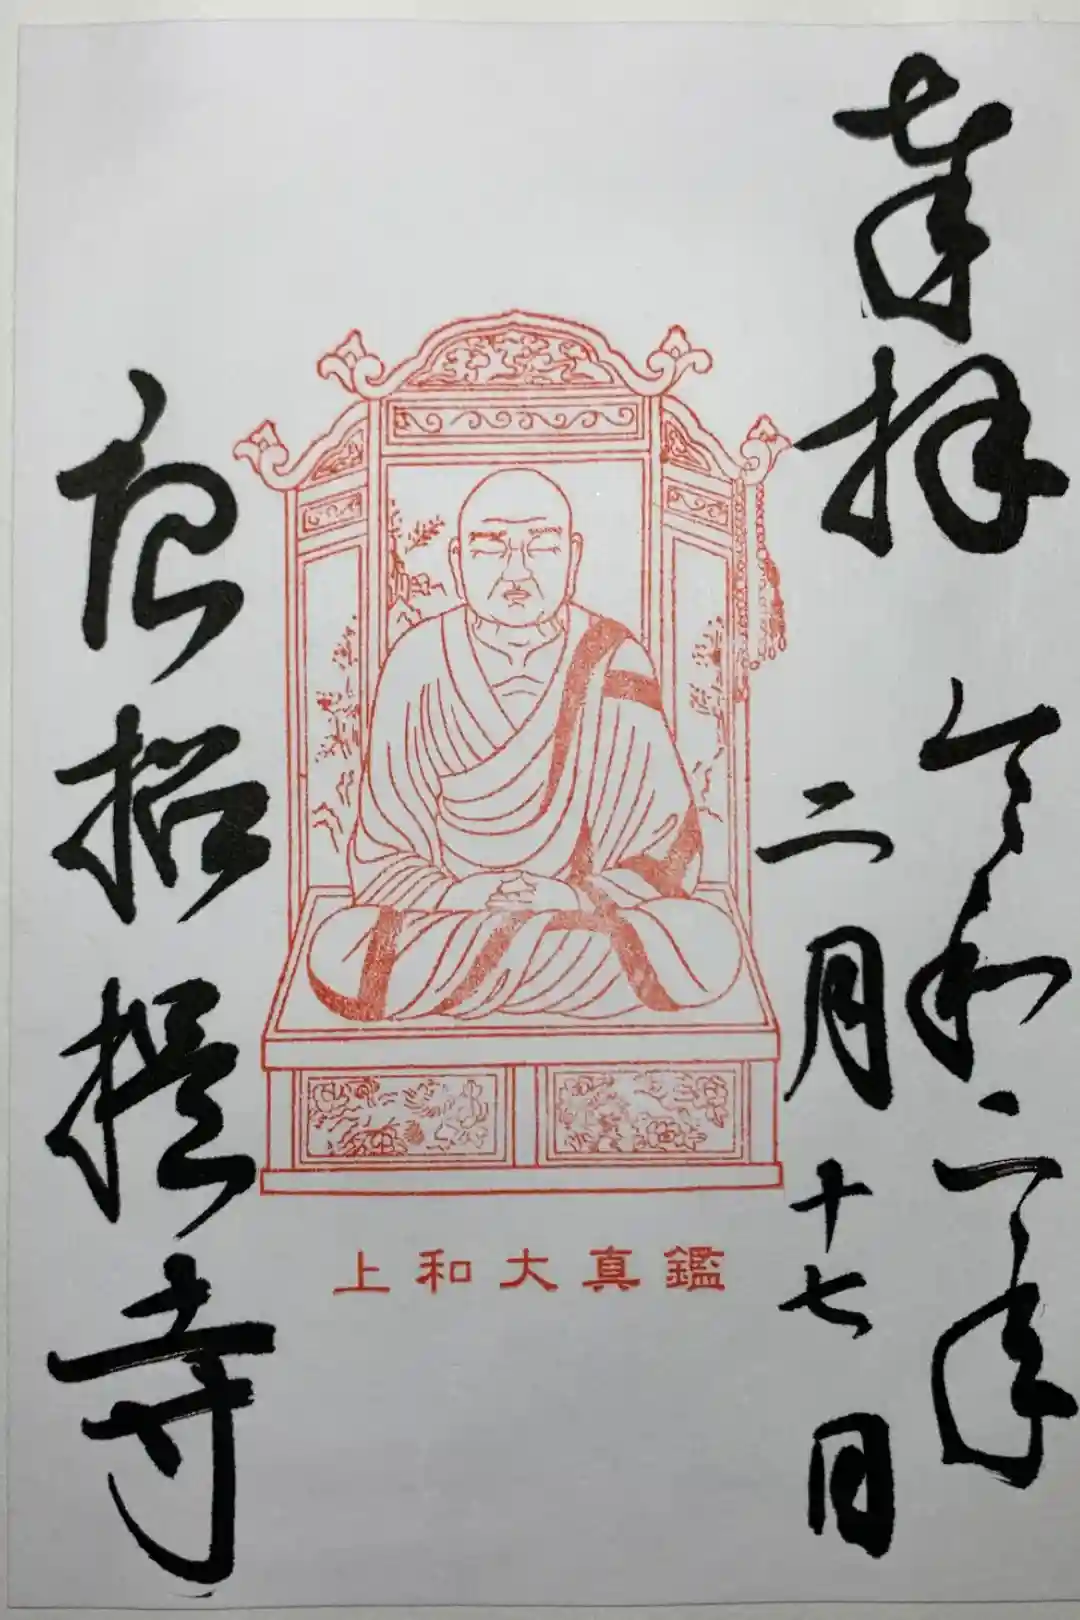 奉拝
令和二年
二月十七日
鑑真大和上
唐招提寺